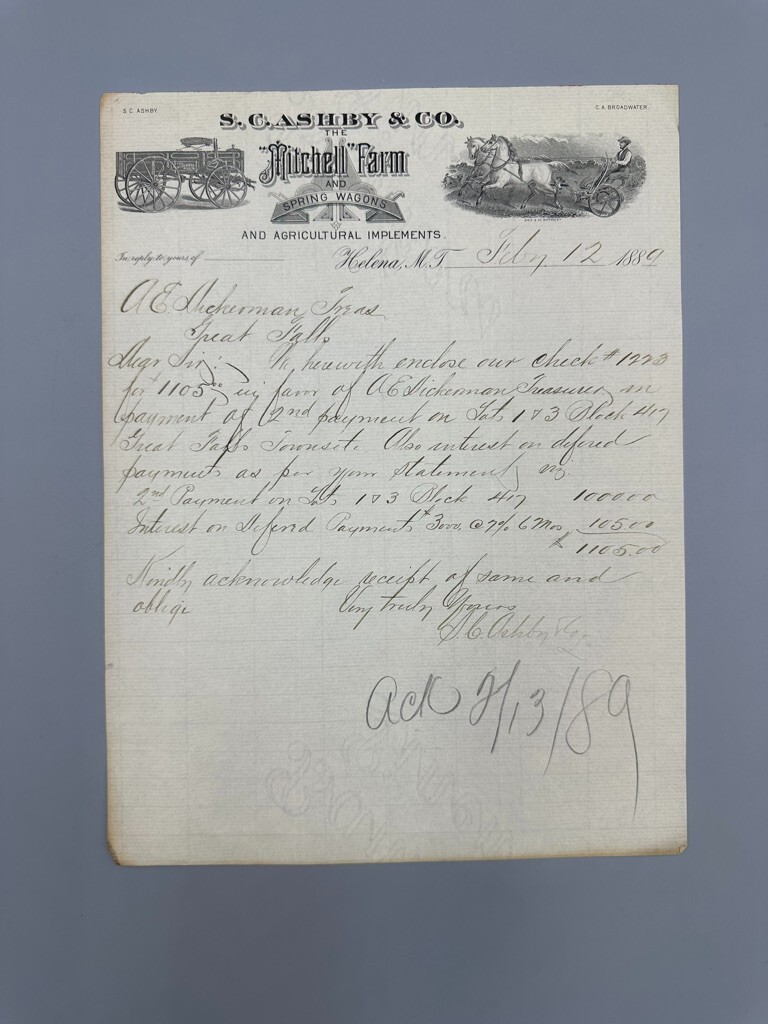 S. C. ASHBY.
C. A. BROADWATER.
S. C. ASHBY & CO.
THE
"Mitchell" Farm
AND
SPRING WAGONS
AND AGRICULTURAL IMPLEMENTS.
In reply to yours of
Helena, M.T. Feby 12 1889
A E Dickerman Treas
Great Falls
Dear Sir: We herewith enclose our check # 1223
for 1105.00 in favor of A E Dickerman Treasurer in
payment of 2nd payment on Lots 1 & 3 Block 417
Great Falls Townsite. Also interest on defered
payments as per your statement, viz
2nd Payment on Lots 1 & 3 Block 417 1000 00
Interest on Defered Payments $3000. @ 7% 6 Mos 105 00
$ 1105.00
Kindly acknowledge receipt of same and
oblige Very truly Yours
S. C. Ashby & Co.
Ack 2/13/89